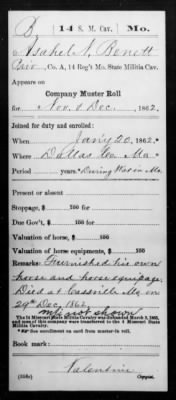 B | 14 S. M. Cav. | Mo.
Isabele N. Benett
Priv, Co. A, 14 Reg't Mo. State Militia Cav.
Appears on
Company Muster Roll
for Nov. & Dec., 1862.
Joined for duty and enrolled:
When Jany 20, 1862.*
Where Dallas Co. Mo
Period years.* During War in Mo.
Present or absent
Stoppage, $ 100 for
Due Gov't, $ 100 for
Valuation of horse, $ 100
Valuation of horse equipments, $ 100
Remarks: Furnished his own
horse and horse equipage.
Died at Cassville Mo. on
29th Dec. 1862.
m/c not shown
The 14 Missouri State Militia Cavalry was disbanded March 3, 1863,
and men of this company were transferred to the 4 Missouri State
Militia Cavalry.
*See enrollment on card from muster-in roll.
Book mark:
Valentine
(358c) Copyist.